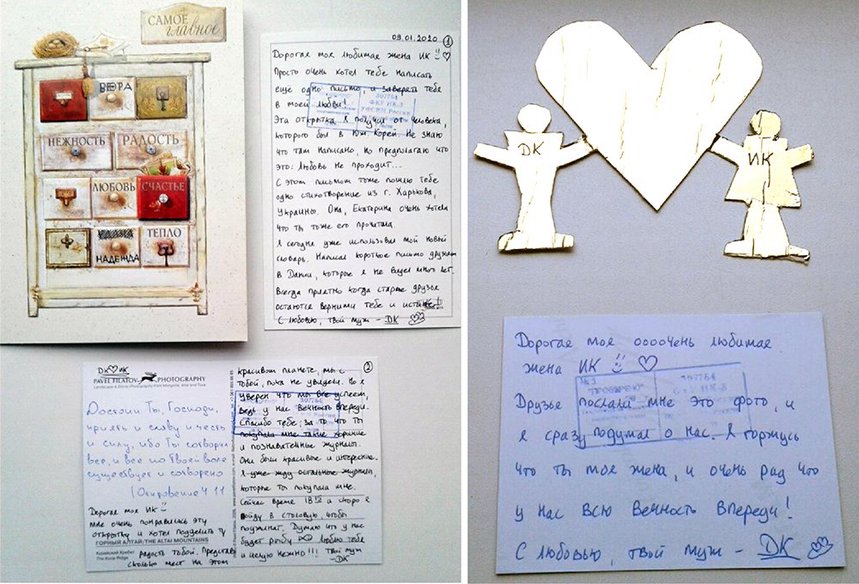 САМОЕ
главное
ВЕРА
НЕЖНОСТЬ
РАДОСТЬ
ЛЮБОВЬ
СЧАСТЬЕ
УДАЧА
ТЕПЛО
НАДЕЖДА
09.01.2020
1
Дорогая моя любимая жена ИК
Просто очень хотел тебе написать
ещё одно письмо, и заверять тебя
в моей любви!
Эта открытка я получил от человека,
которого был в Юж. Корей. Не знаю
что там написано, но предполагаю что
это: Любовь не проходит...
С этом письмом тоже пошлю тебе
одно стихотворение из г. Харькова,
Украины. Она, Екатерина очень хотела
что ты тоже его прочитала.
Я сегодня уже использовал мой новый
словарь. Написал короткое письмо друзьям
в Дании, которое я не видел много лет.
Всегда приятно когда старые друзья
остаются верными тебе и истине!!
С любовью, твой муж - DК
307764
ФКУ ИК-3
DК ИК
PAVEL FILATOV PHOTOGRAPHY
Достоин Ты, Господи,
принять и славу и честь
и силу, ибо Ты сотворил
все, и все по Твоей воле
существует и сотворено
(Откровение 4 11
Дорогая моя ИК
мне очень понравилась эту
открытку и хотел поделить ту
ГОРНЫЙ АЛТАЙ/THE ALTAI MOUNTAINS
радость тобой. Представь
сколько мест на этом
2
красивом планете, мы с
тобой, пока не увидели. Но я
уверен что мы все успеем,
ведь у нас вечность впереди.
Спасибо тебе, за то что ты
покупала мне такие хорошие
и познавательные журналы.
Они были красивое и интересные.
Я уже жду остальное журналы,
которые ты покупала мне.
Сейчас время 18 и скоро я
пойду в столовую, чтобы
поужинать. Думаю что у нас
будет рыбу Люблю тебя
и целую нежно!!! Твой муж
-DК
DК
ИК
Дорогая моя оооочень любимая
жена ИК
Друзье послали мне это фото, и
я сразу подумал о нас. Я горжусь
что ты моя жена, и очень рад что
у нас всю вечность впереди!
С любовью, твой муж - DК